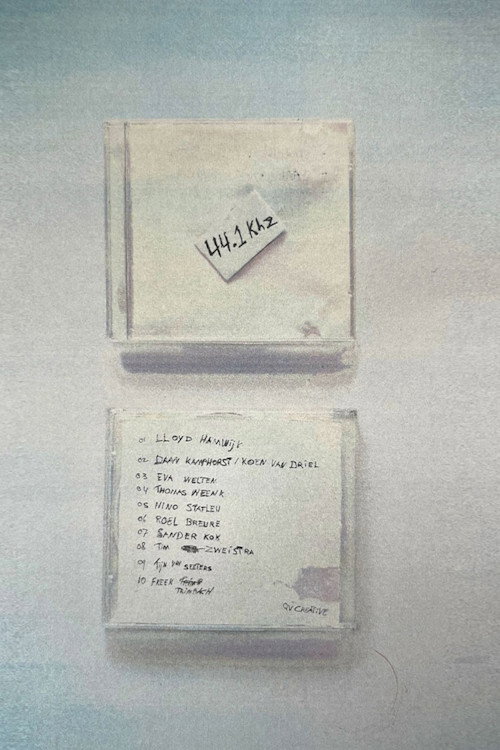 44.1 Khz
01 LLOYD HAMWIJK
02 DAAN KAMPHORST / KOEN VAN DRIEL
03 EVA WELTEN
04 THOMAS WEENK
05 NINO STATLEU
06 ROEL BREURE
07 SANDER KOK
08 TIM ZWEISTRA
09 VAN SEETERS
10 FREEK
TRIMBACH
QV CREATIVE